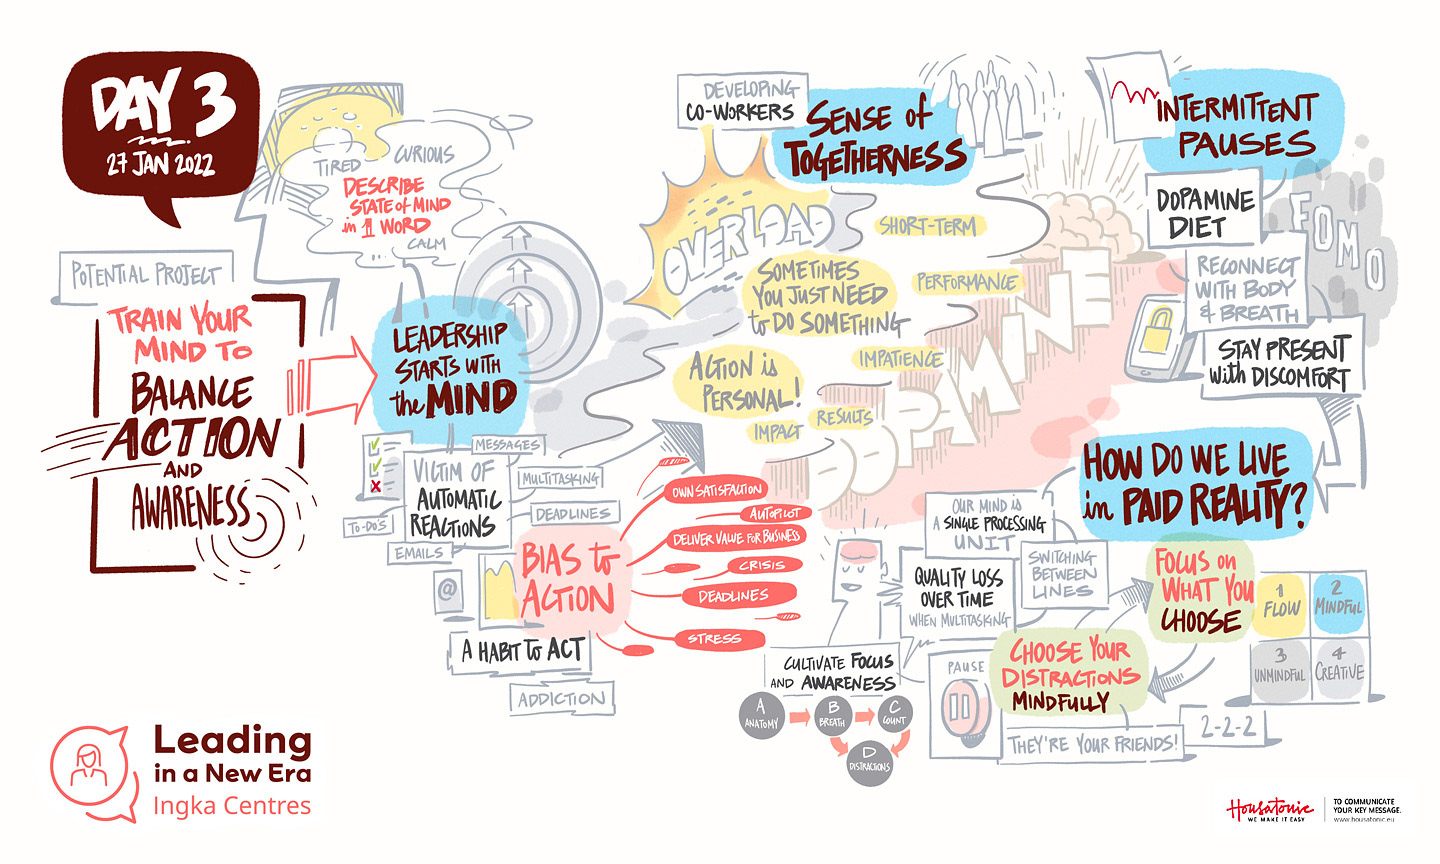 DAY 3
27 JAN 2022
POTENTIAL PROJECT
TRAIN YOUR
MIND TO
BALANCE
ACTION
AND
AWARENESS
TIRED
CURIOUS
DESCRIBE
STATE of MIND
in 1 WORD
CALM
LEADERSHIP
STARTS WITH
the MIND
VICTIM OF
AUTOMATIC
REACTIONS
MESSAGES
MULTITASKING
DEADLINES
TO-DO'S
EMAILS
@
BIAS to
ACTION
A HABIT to ACT
ADDICTION
OWN SATISFACTION
AUTOPILOT
DELIVER VALUE FOR BUSINESS
CRISIS
DEADLINES
STRESS
DEVELOPING
CO-WORKERS
SENSE of
TOGETHERNESS
OVERLOAD
SOMETIMES
YOU JUST NEED
to DO SOMETHING
ACTION is
PERSONAL!
SHORT-TERM
PERFORMANCE
IMPATIENCE
RESULTS
IMPACT
DOPAMINE
INTERMITTENT
PAUSES
DOPAMINE
DIET
FOMO
RECONNECT
WITH BODY
& BREATH
STAY PRESENT
with DISCOMFORT
HOW DO WE LIVE
in PAID REALITY?
OUR MIND is
A SINGLE PROCESSING
UNIT
SWITCHING
BETWEEN
LINES
QUALITY LOSS
OVER TIME
WHEN MULTITASKING
CULTIVATE FOCUS
AND AWARENESS
A
ANATOMY
B
BREATH
C
COUNT
D
DISTRACTIONS
FOCUS on
WHAT YOU
CHOOSE
1
FLOW
2
MINDFUL
3
UNMINDFUL
4
CREATIVE
PAUSE
CHOOSE YOUR
DISTRACTIONS
MINDFULLY
THEY'RE YOUR FRIENDS!
2-2-2
Leading
in a New Era
Ingka Centres
Housatonic
WE MAKE IT EASY
TO COMMUNICATE
YOUR KEY MESSAGE.
www.housatonic.eu